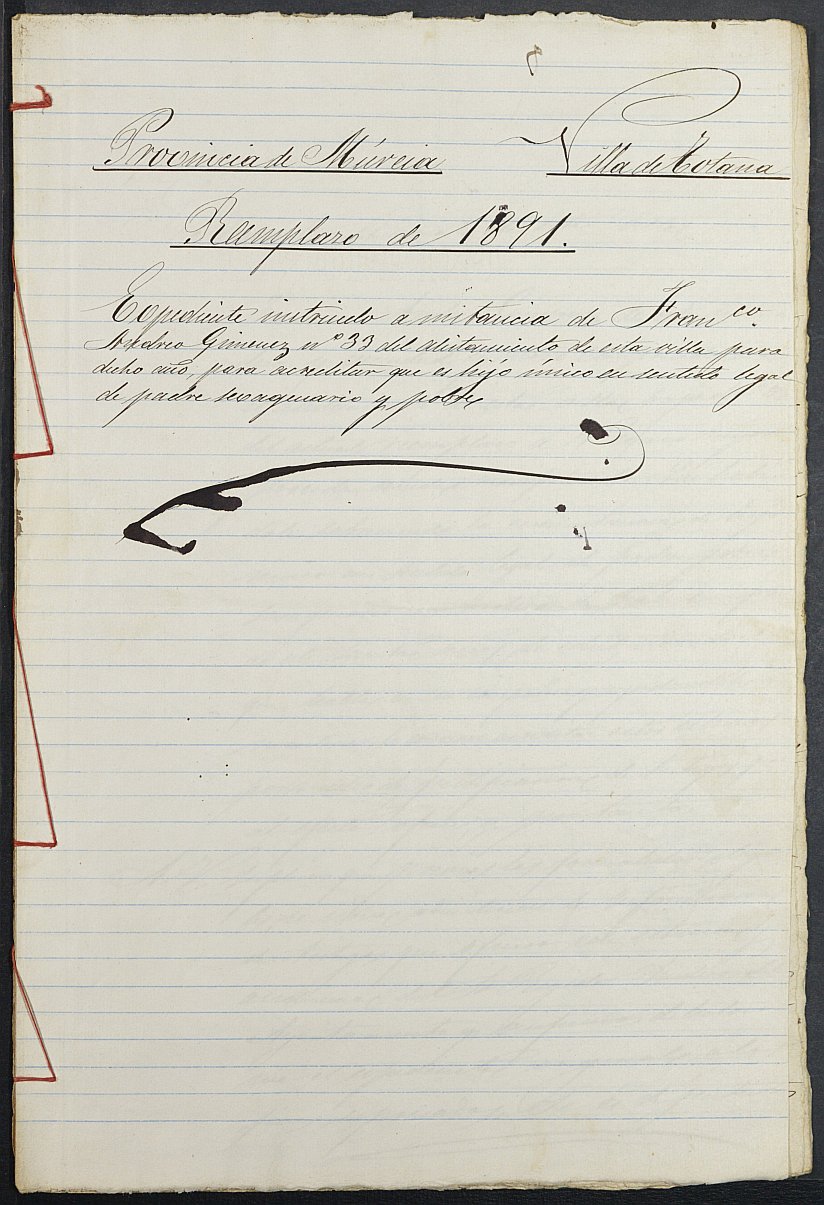 Provincia de Múrcia Villa de Totana
Reemplazo de 1891.
Expediente instruido a instancia de Fran.co
Andreo Gimenez nº 33 del alistamiento de esta villa para
dicho año, para acreditar que es hijo unico en sentido legal
de padre sexagenario y pobre